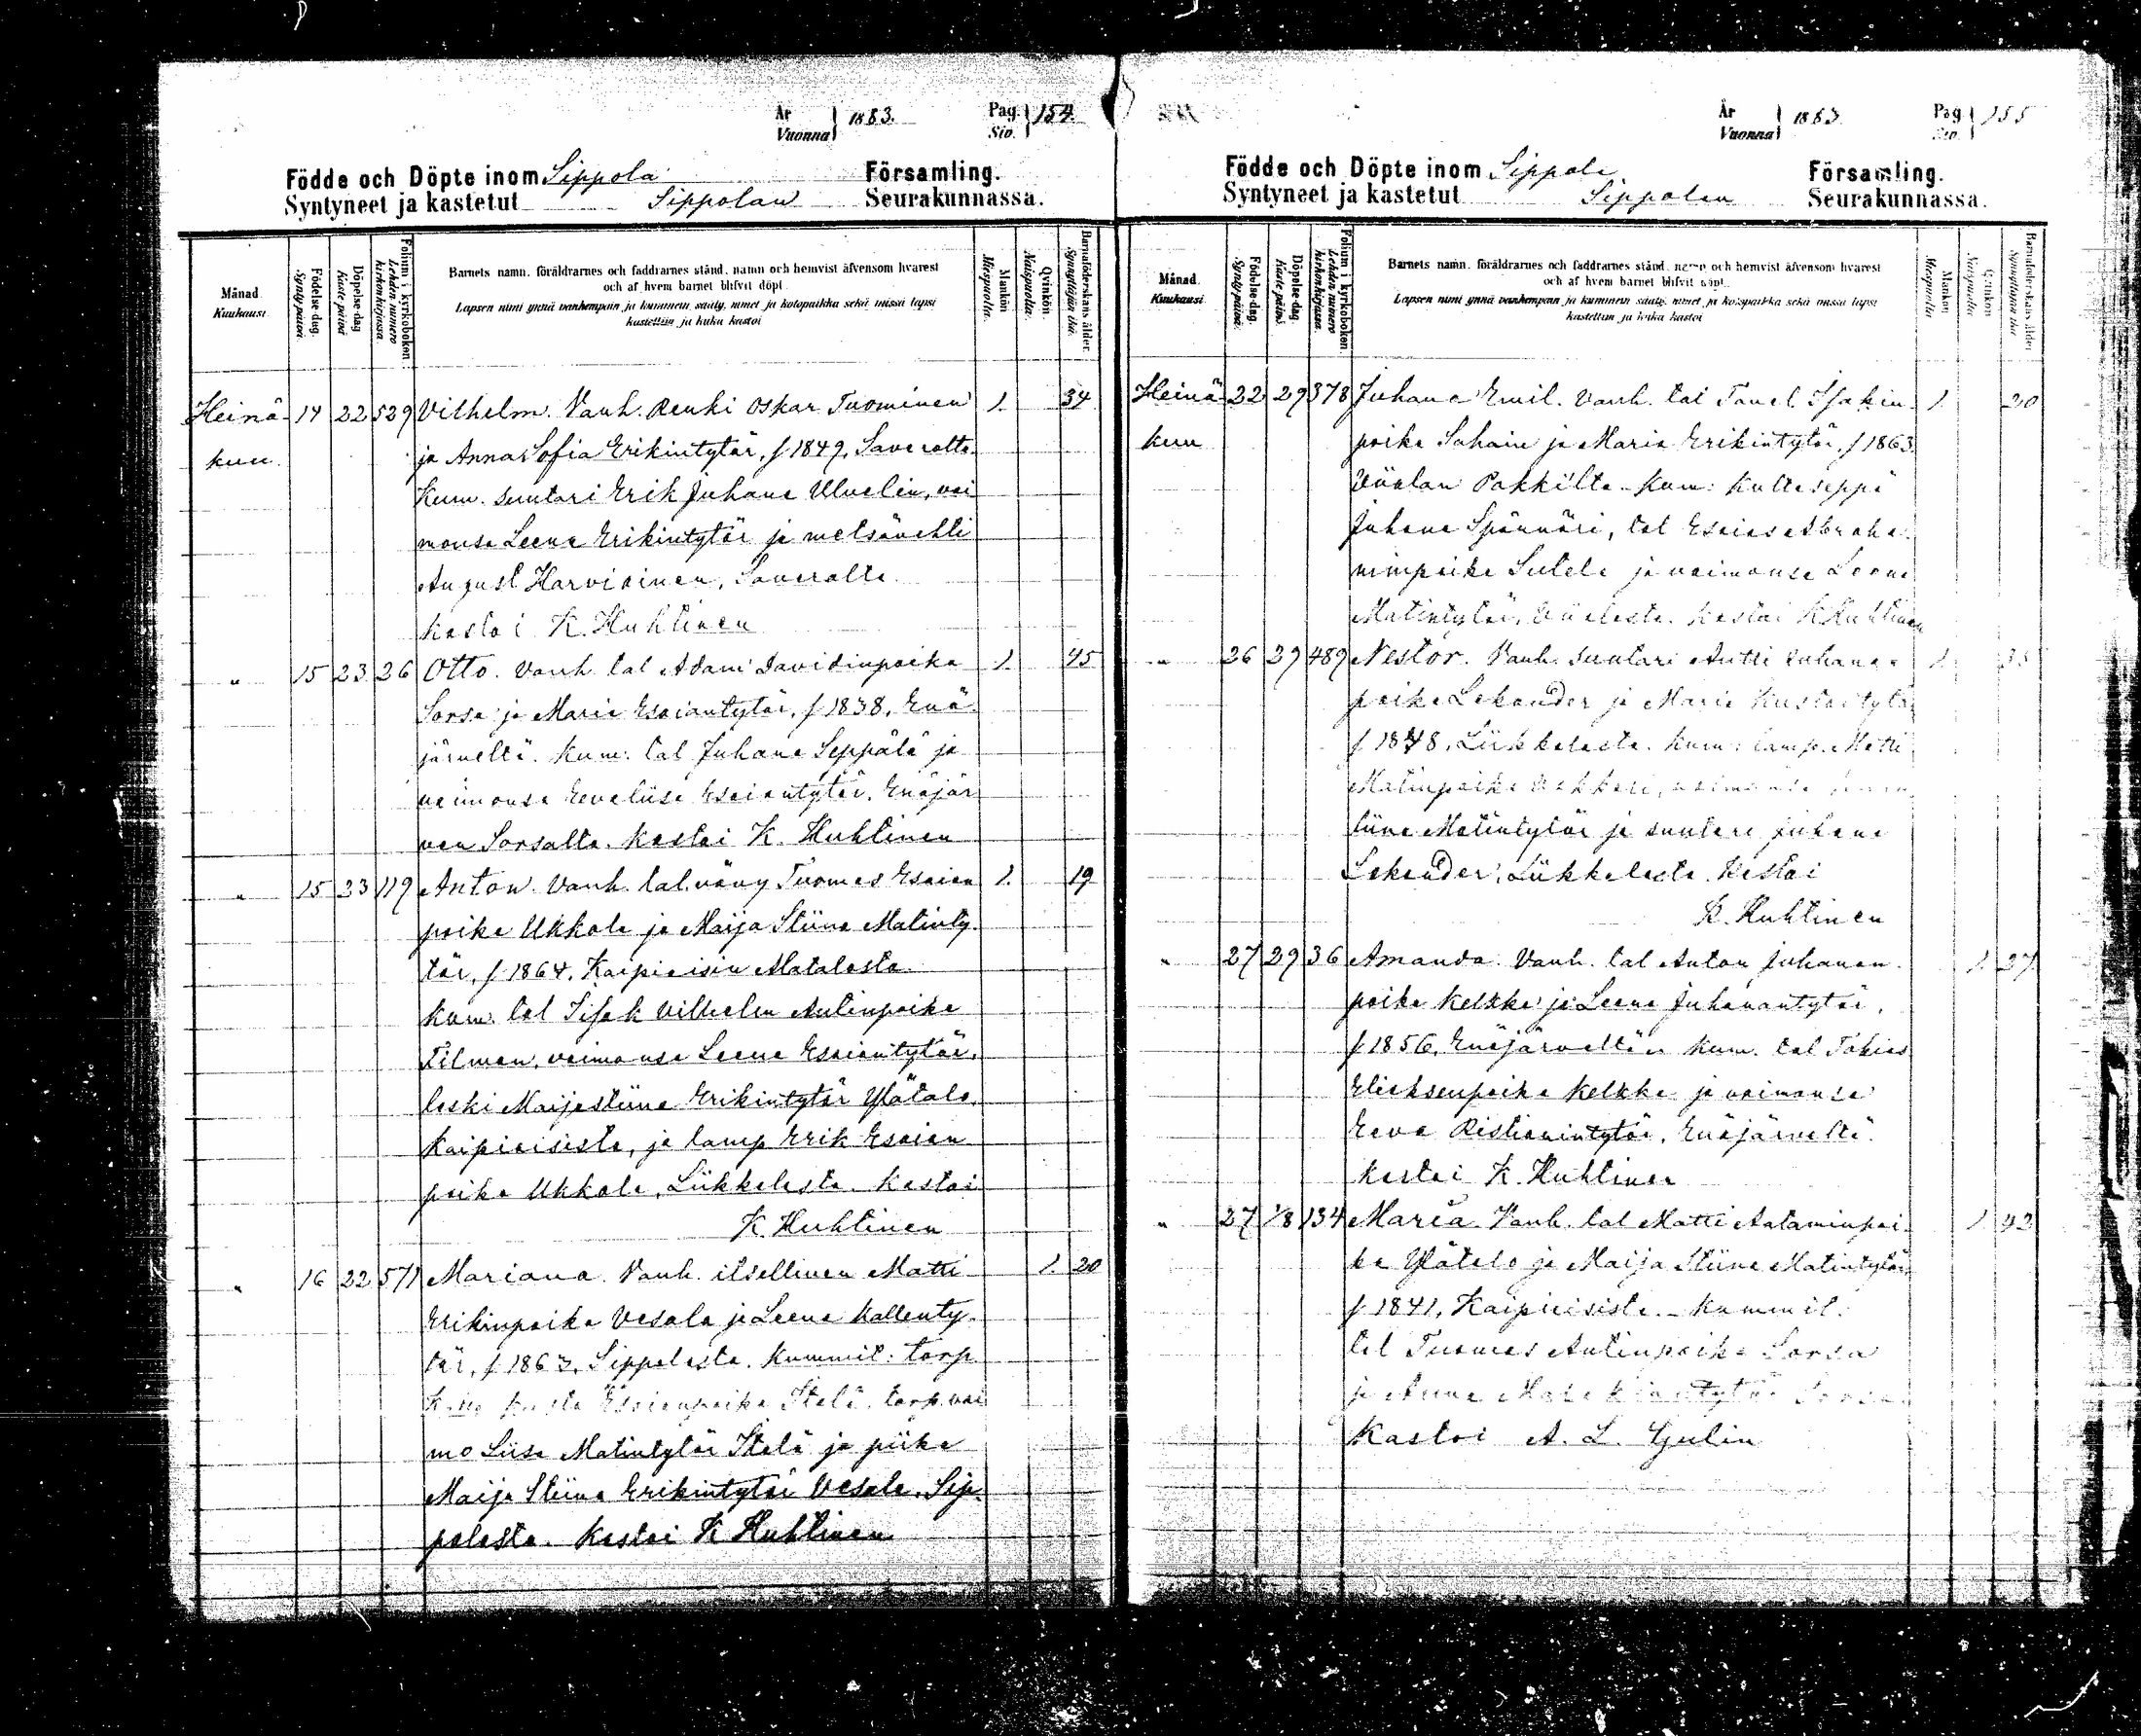 År Vuonna 1883. Pag. Siv. 154.
Födde och Döpte inom Sippola Församling.
Syntyneet ja kastetut Sippolan Seurakunnassa.
Månad. Kuukausi.
Födelse-dag. Synty-päivä.
Döpelse-dag. Kaste-päivä.
Folium i kyrkoboken. Lehden numero kirkonkirjassa.
Barnets namn, föräldrarnes och faddrarnes stånd, namn och hemvist äfvensom hvarest
och af hvem barnet blifvit döpt.
Lapsen nimi ynnä vanhempain ja kummein sääty, nimet ja kotopaikka sekä missä lapsi
kastettiin ja kuka kastoi
Mankön. Miespuolta.
Qvinkön. Naispuolta.
Barnaföderskans ålder. Synnyttäjän ikä.
Heinä- 14 22 529 Vilhelm. Vanh. Renki Oskar Tuominen 1. 34
kuu. ja Anna Sofia Erikintytär, f 1849, Saverolta.
Kum. suutari Erik Juhana Uluelin, vai
monsa Leena Erikintytär ja metsävahti
August Harviainen, Saverolta.
kastoi K. Huhtinen
" 15 23 26 Otto. Vanh. tal Adam Davidinpoika 1. 45
Sorsa ja Maria Esaiantytär, f 1838, Enä-
järveltä. Kum: tal Juhana Seppälä ja
vaimonsa Eevaliisa Esaiantytär, Enäjär
ven Sorsalta. Kastoi K. Huhtinen
" 15 23 119 Anton. Vanh. tal. vävy Tuomas Esaian 1. 19
poika Ukkola ja Maija Stiina Matinty-
tär, f 1864, Kaipiaisin Matalasta.
Kum. tal Iisak Vilhelm Antinpoika
Tilman, vaimonsa Leena Esaiantytär,
leski Maijastiina Erikintytär Ylätalo,
Kaipiaisista, ja lamp Erik Esaian
poika Ukkola, Liikkalasta. Kastoi
K. Huhtinen
" 16 22 571 Mariana. Vanh. itsellinen Matti 1. 20
Erikinpoika Vesala ja Leena Kallenty-
tär, f 1863, Sippolasta. Kummit: torp
Esaianpoika Itälä, torp. vai
mo Liisa Matintytär Itälä ja piika
Maija Stiina Erikintytär Vesala, Sip-
polasta. Kastoi K Huhtinen
År Vuonna 1883. Pag Siv. 155
Födde och Döpte inom Sippola Församling.
Syntyneet ja kastetut Sippolan Seurakunnassa.
Månad. Kuukausi.
Födelse-dag. Synty-päivä.
Döpelse-dag. Kaste-päivä.
Folium i kyrkoboken. Lehden numero kirkonkirjassa.
Barnets namn, föräldrarnes och faddrarnes stånd, namn och hemvist äfvensom hvarest
och af hvem barnet blifvit döpt.
Lapsen nimi ynnä vanhempain ja kummein sääty, nimet ja kotopaikka sekä missä lapsi
kastettiin ja kuka kastoi
Mankön. Miespuolta.
Qvinkön. Naispuolta.
Barnaföderskans ålder. Synnyttäjän ikä
Heinä 22 29 378 Juhana Emil. Vanh. tal Tanel Isakin 1. 20
kuu poika Sahain ja Maria Erikintytär, f 1863
Viialan Pakkilta. Kum: Kultaseppä
Juhana Spännäri, tal Esaias Abraha
mimpoika Sutela ja vaimonsa Leena
Matintytär, Viialasta. Kastoi K Huhtinen
" 26 29 489 Nestor. Vanh. suutari Antti Juhana- 1. 35
poika Lekander ja Maria Kustaantytär
f 1848, Liikkalasta. Kum: lamp. Matti
Matinpoika vaimonsa
liina Matintytär ja suutari Juhana
Lekander, Liikkalasta. Kastoi
K. Huhtinen
" 27 29 36 Amanda. Vanh. tal Anton Juhanan 1. 27
poika Kelkka ja Leena Juhanantytär,
f 1856, Enäjärveltä. Kum. tal Tobias
Eliaksenpoika Kelkka ja vaimonsa
Eeva Ristianintytär, Enäjärveltä.
Kastoi K. Huhtinen
" 27 1/8 134 Maria. Vanh. tal Matti Aataminpoi- 1 42
ka Ylätalo ja Maija Stiina Matintytär,
f 1841, Kaipiaisista. Kummit:
tal Tuomas Antinpoika Sorsa
ja Anna
Kastoi A. L. Gulin